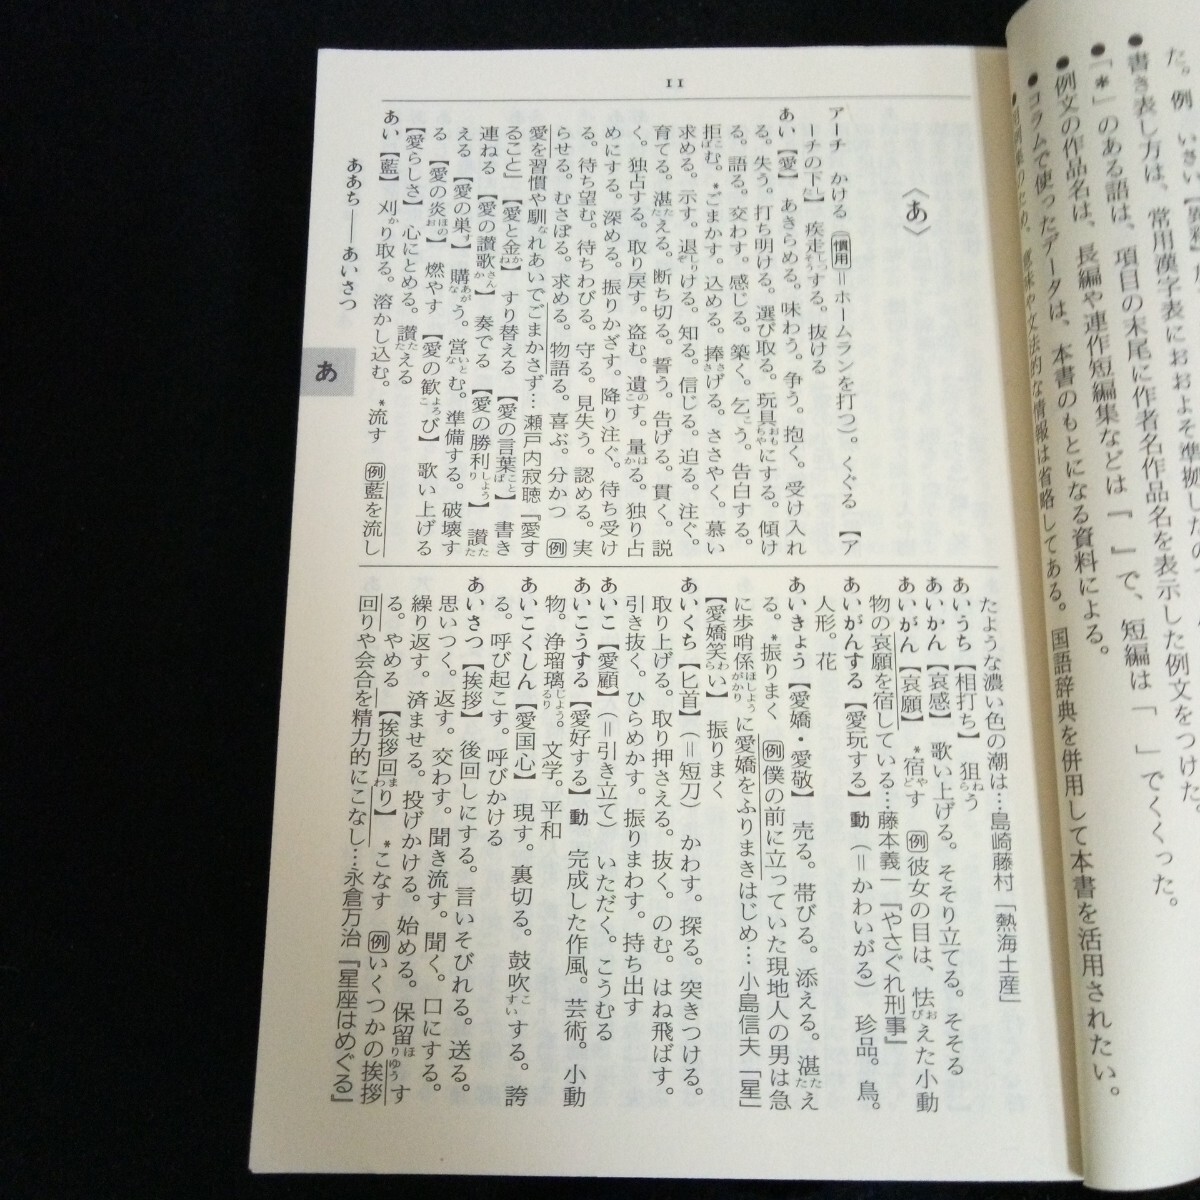 た。例 いさい【
書き表し方は、常用漢字表におおよそ準拠した
●「*」のある語は、項目の末尾に作者名作品名を表示した例文をつけた
●例文の作品名は、長編や連作短編集などは『 』で、短編は「 」でくくった。
●コラムで使ったデータは、本書のもとになる資料による。
意味や文法的な情報は省略してある。国語辞典を併用して本書を活用されたい。
11
〈あ〉
アーチ かける(慣用=ホームランを打つ)。くぐる 【ア
ーチの下した】疾走しっそうする。抜ける
あい【愛】 あきらめる。味わう。争う。抱く。受け入れ
る。失う。打ち明ける。選び取る。玩具おもちゃにする。傾け
る。語る。交わす。感じる。築く。乞こう。告白する。
拒こばむ。*ごまかす。込める。捧ささげる。ささやく。慕い
求める。示す。退しりぞける。知る。信じる。迫る。注ぐ。
育てる。湛たたえる。断ち切る。誓う。告げる。貫く。説
く。独占する。取り戻す。盗む。遺のこす。量はかる。独り占
めにする。深める。振りかざす。降り注ぐ。待ち受け
る。待ち望む。待ちわびる。守る。見失う。認める。実
らせる。むさぼる。求める。物語る。喜ぶ。分かつ 例
愛を習慣や馴なれあいでごまかさず…瀬戸内寂聴『愛す
ること』【愛と金かね】すり替える 【愛の言葉ことば】書き
連ねる 【愛の讃歌さんか】奏でる 【愛の勝利しょうり】讃たた
える 【愛の巣す】購あがなう。営いとなむ。準備する。破壊す
る 【愛の炎ほのお】燃やす 【愛の歓よろこび】歌い上げる
【愛らしさ】心にとめる。讃たたえる
あい【藍】 刈かり取る。溶かし込む。*流す 例藍を流し
たような濃い色の潮は…島崎藤村「熱海土産」
あいうち【相打ち】 狙ねらう
あいかん【哀感】 歌い上げる。そそり立てる。そそる
あいがん【哀願】 *宿やどす 例彼女の目は、怯おびえた小動
物の哀願を宿している…藤本義一『やさぐれ刑事』
あいがんする【愛玩する】動(=かわいがる) 珍品。鳥。
人形。花
あいきょう【愛嬌・愛敬】 売る。帯びる。添える。湛たたえ
る。*振りまく 例僕の前に立っていた現地人の男は急
に歩哨係ほしょうがかりに愛嬌をふりまきはじめ…小島信夫「星」
【愛嬌笑わらい】振りまく
あいくち【匕首】(=短刀) かわす。探る。突きつける。
取り上げる。取り押さえる。抜く。のむ。はね飛ばす。
引き抜く。ひらめかす。振りまわす。持ち出す
あいこ【愛顧】(=引き立て) いただく。こうむる
あいこうする【愛好する】動 完成した作風。芸術。小動
物。浄瑠璃じょうるり。文学。平和
あいこくしん【愛国心】 現す。裏切る。鼓吹こすいする。誇
る。呼び起こす。呼びかける
あいさつ【挨拶】 後回しにする。言いそびれる。送る。
思いつく。返す。交わす。聞き流す。聞く。口にする。
繰り返す。済ませる。投げかける。始める。保留ほりゅうす
る。やめる 【挨拶回まわり】*こなす 例いくつかの挨拶
回りや会合を精力的にこなし…永倉万治『星座はめぐる』
あ
ああち──あいさつ